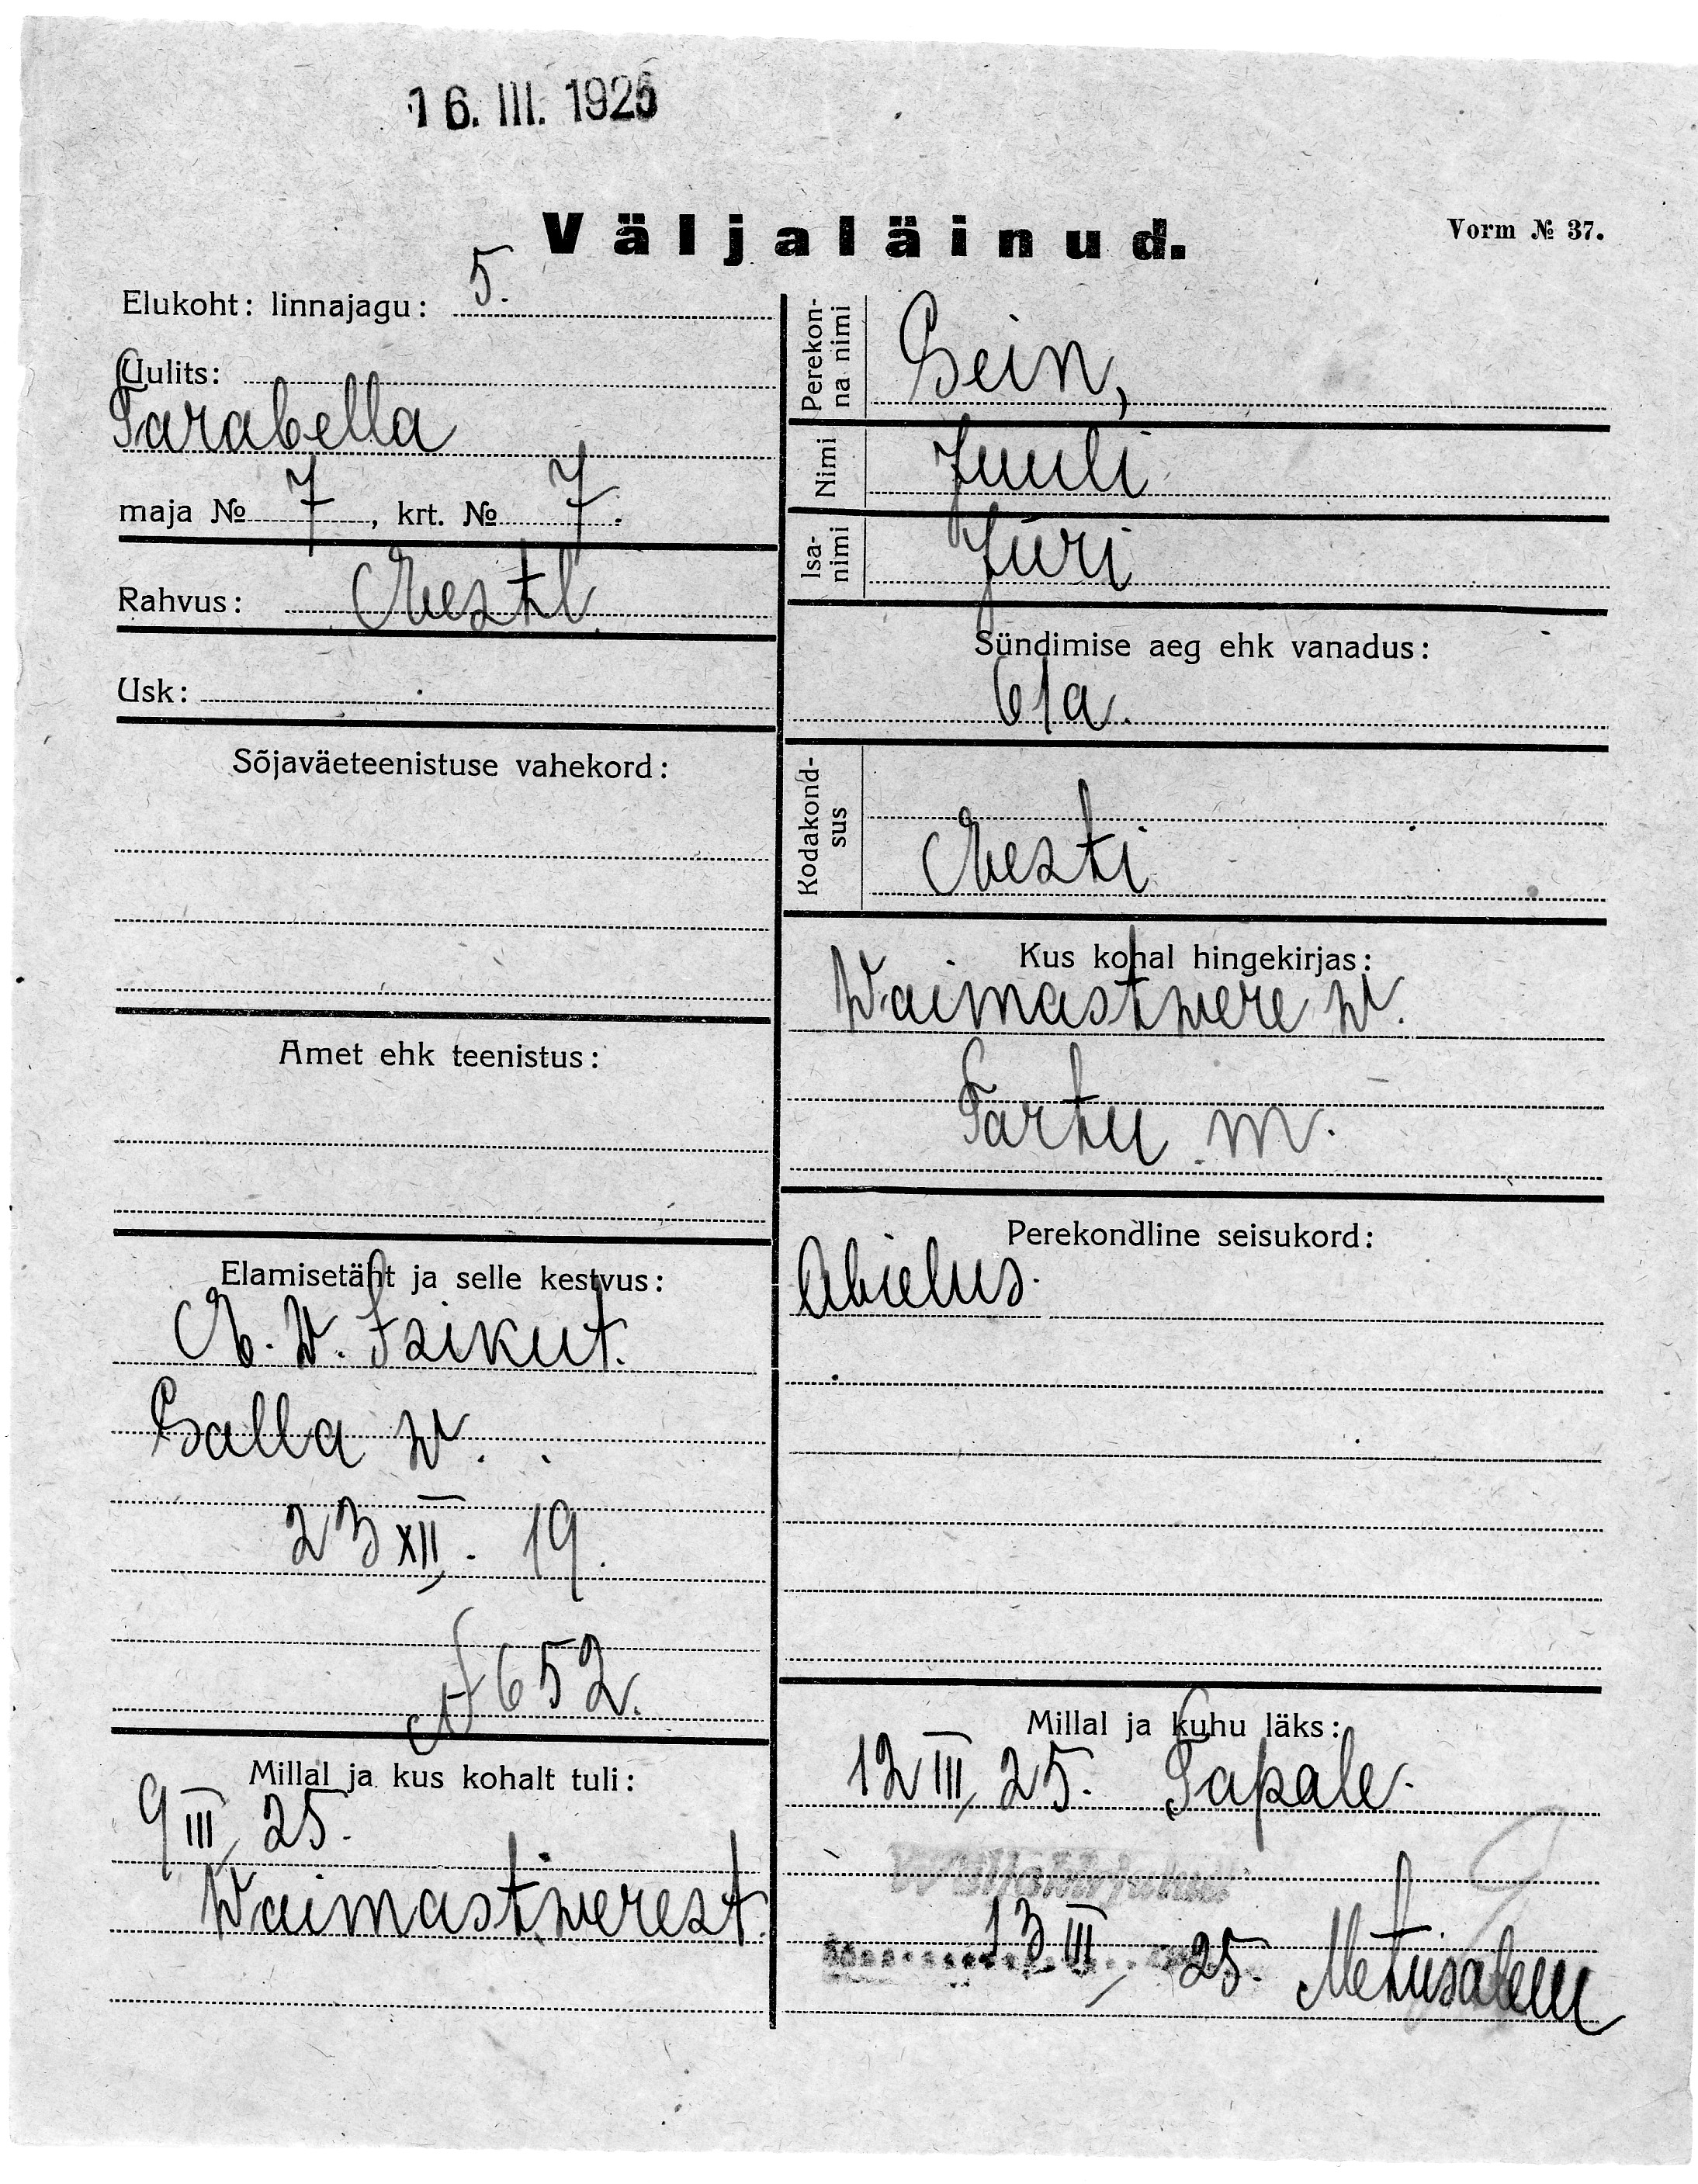 16. III. 1925
Väljaläinud.
Vorm № 37.
Elukoht: linnajagu: 5.
Uulits:
Parabella
maja № 7, krt. № 7.
Rahvus: Eestl.
Usk:
Sõjaväeteenistuse vahekord:
Amet ehk teenistus:
Elamisetäht ja selle kestvus:
E. W. Isikut.
Salla w.
23 XII. 19.
№ 652.
Millal ja kus kohalt tuli:
9 III, 25.
Waimastwerest.
Perekonna nimi
Sein,
Nimi
Juuli
Isanimi
Jüri
Sündimise aeg ehk vanadus:
61 a.
Kodakondsus
Eesti
Kus kohal hingekirjas:
Waimastwere w.
Tartu m.
Perekondline seisukord:
Abielus.
Millal ja kuhu läks:
12 III, 25. Tapale.
13 III, 25. Metusalem